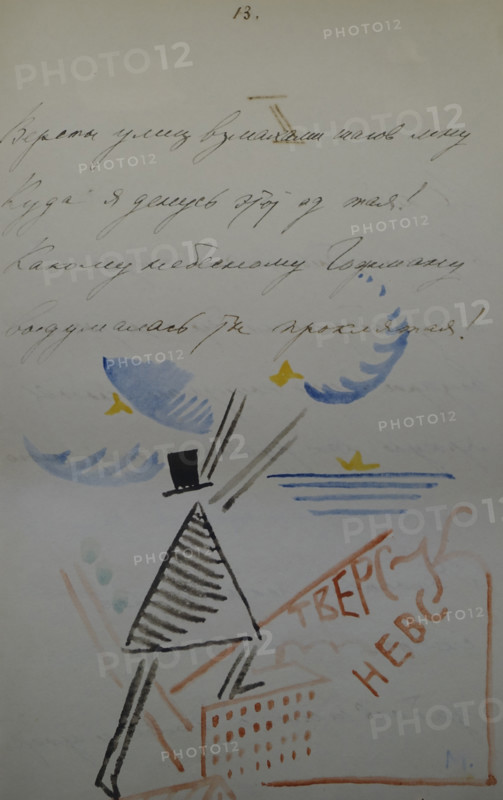 13.
Версты улиц взмахами шагов мну
Куда я денусь этот ад тая!
Какому небесному Гофману
выдумалась ты проклятая!
ТВЕРС
НЕВС
М.
PHOTO12
PHOTO12
PHOTO12
PHOTO12
PHOTO12
PHOTO12
PHOTO12
PHOTO12
PHOTO12
PHOTO12
PHOTO12
PHOTO12
PHOTO12
PHOTO12
PHOTO12
PHOTO12
PHOTO12